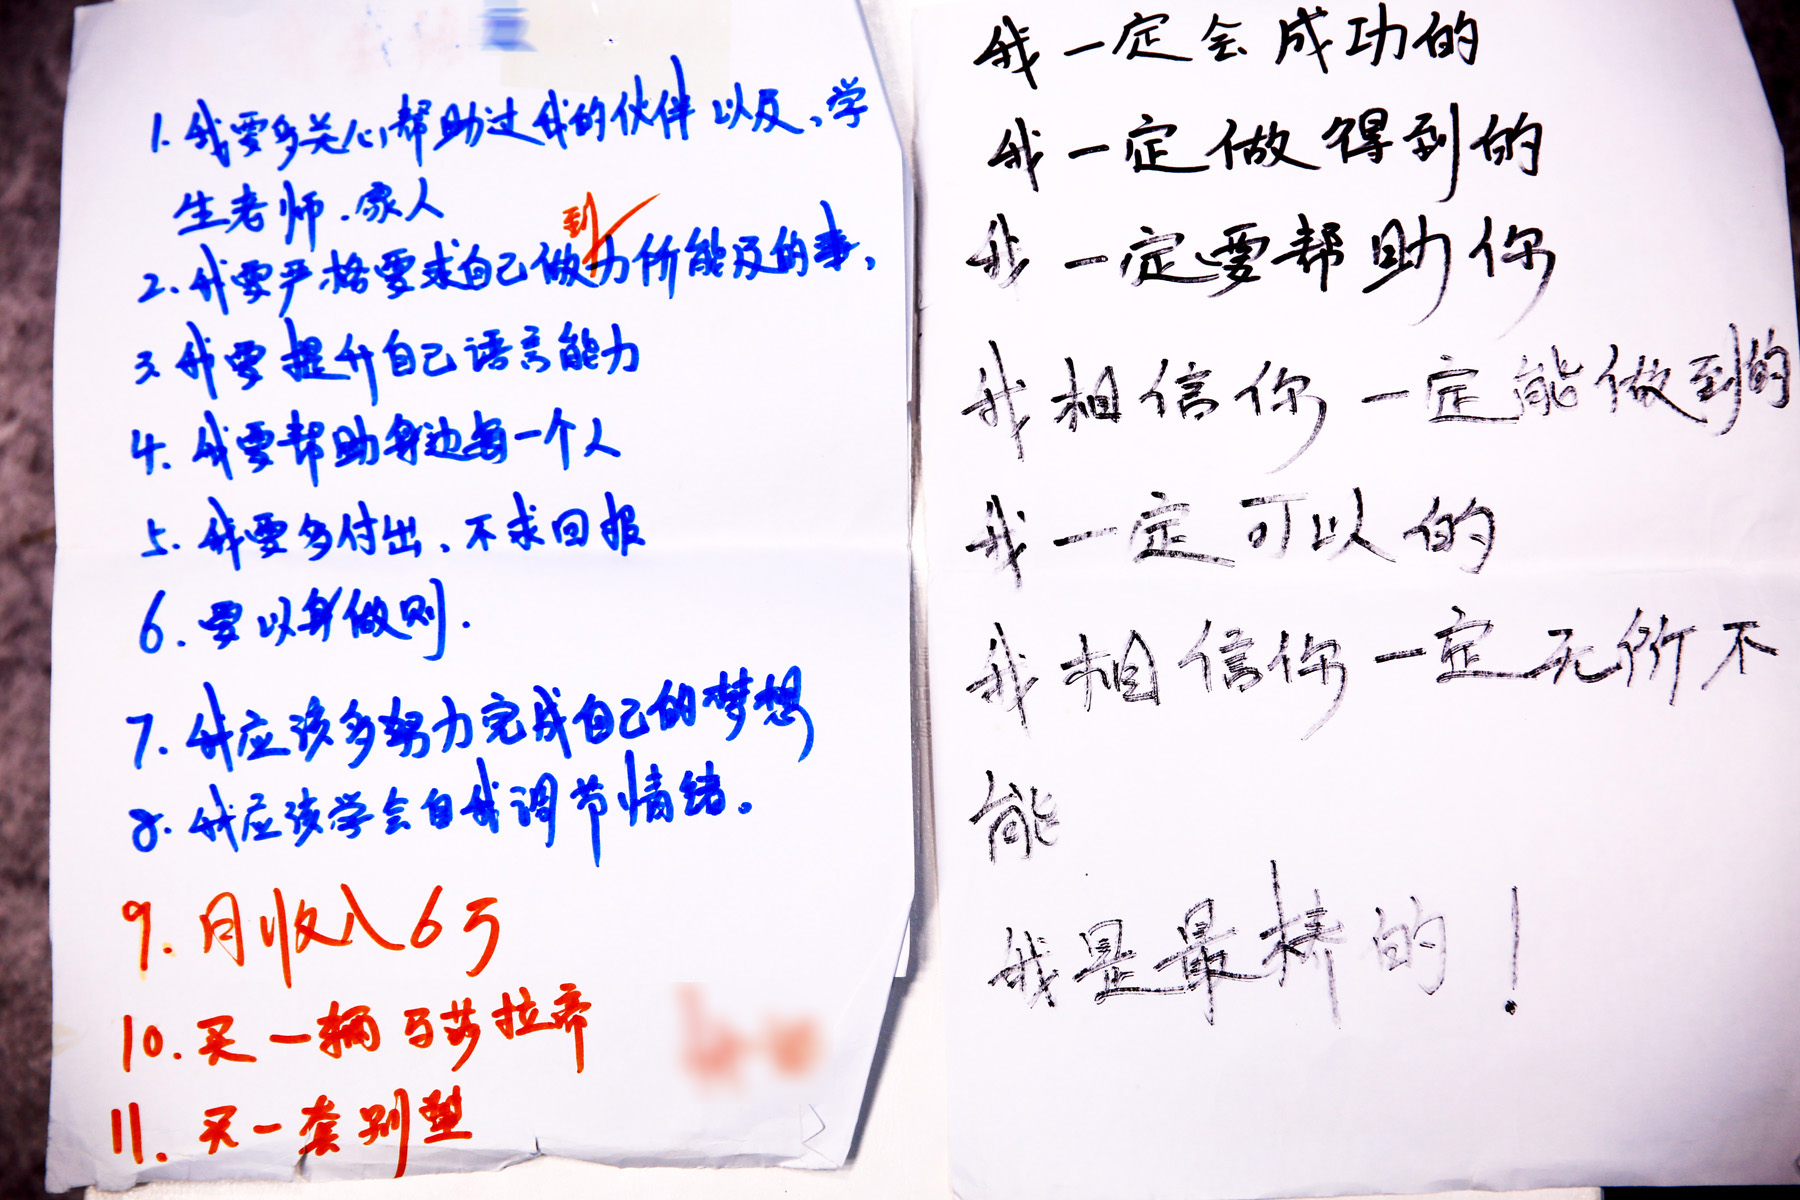 1. 我要多关心帮助过我的伙伴以及、学
生老师.家人
2. 我要严格要求自己做到力所能及的事,
3. 我要提升自己语言能力
4. 我要帮助身边每一个人
5. 我要多付出、不求回报
6. 要以身做则.
7. 我应该多努力完成自己的梦想
8. 我应该学会自我调节情绪。
9. 月收入6万
10. 买一辆玛莎拉帝
11. 买一套别墅
我一定会成功的
我一定做得到的
我一定要帮助你
我相信你一定能做到的
我一定可以的
我相信你一定无所不
能
我是最棒的!